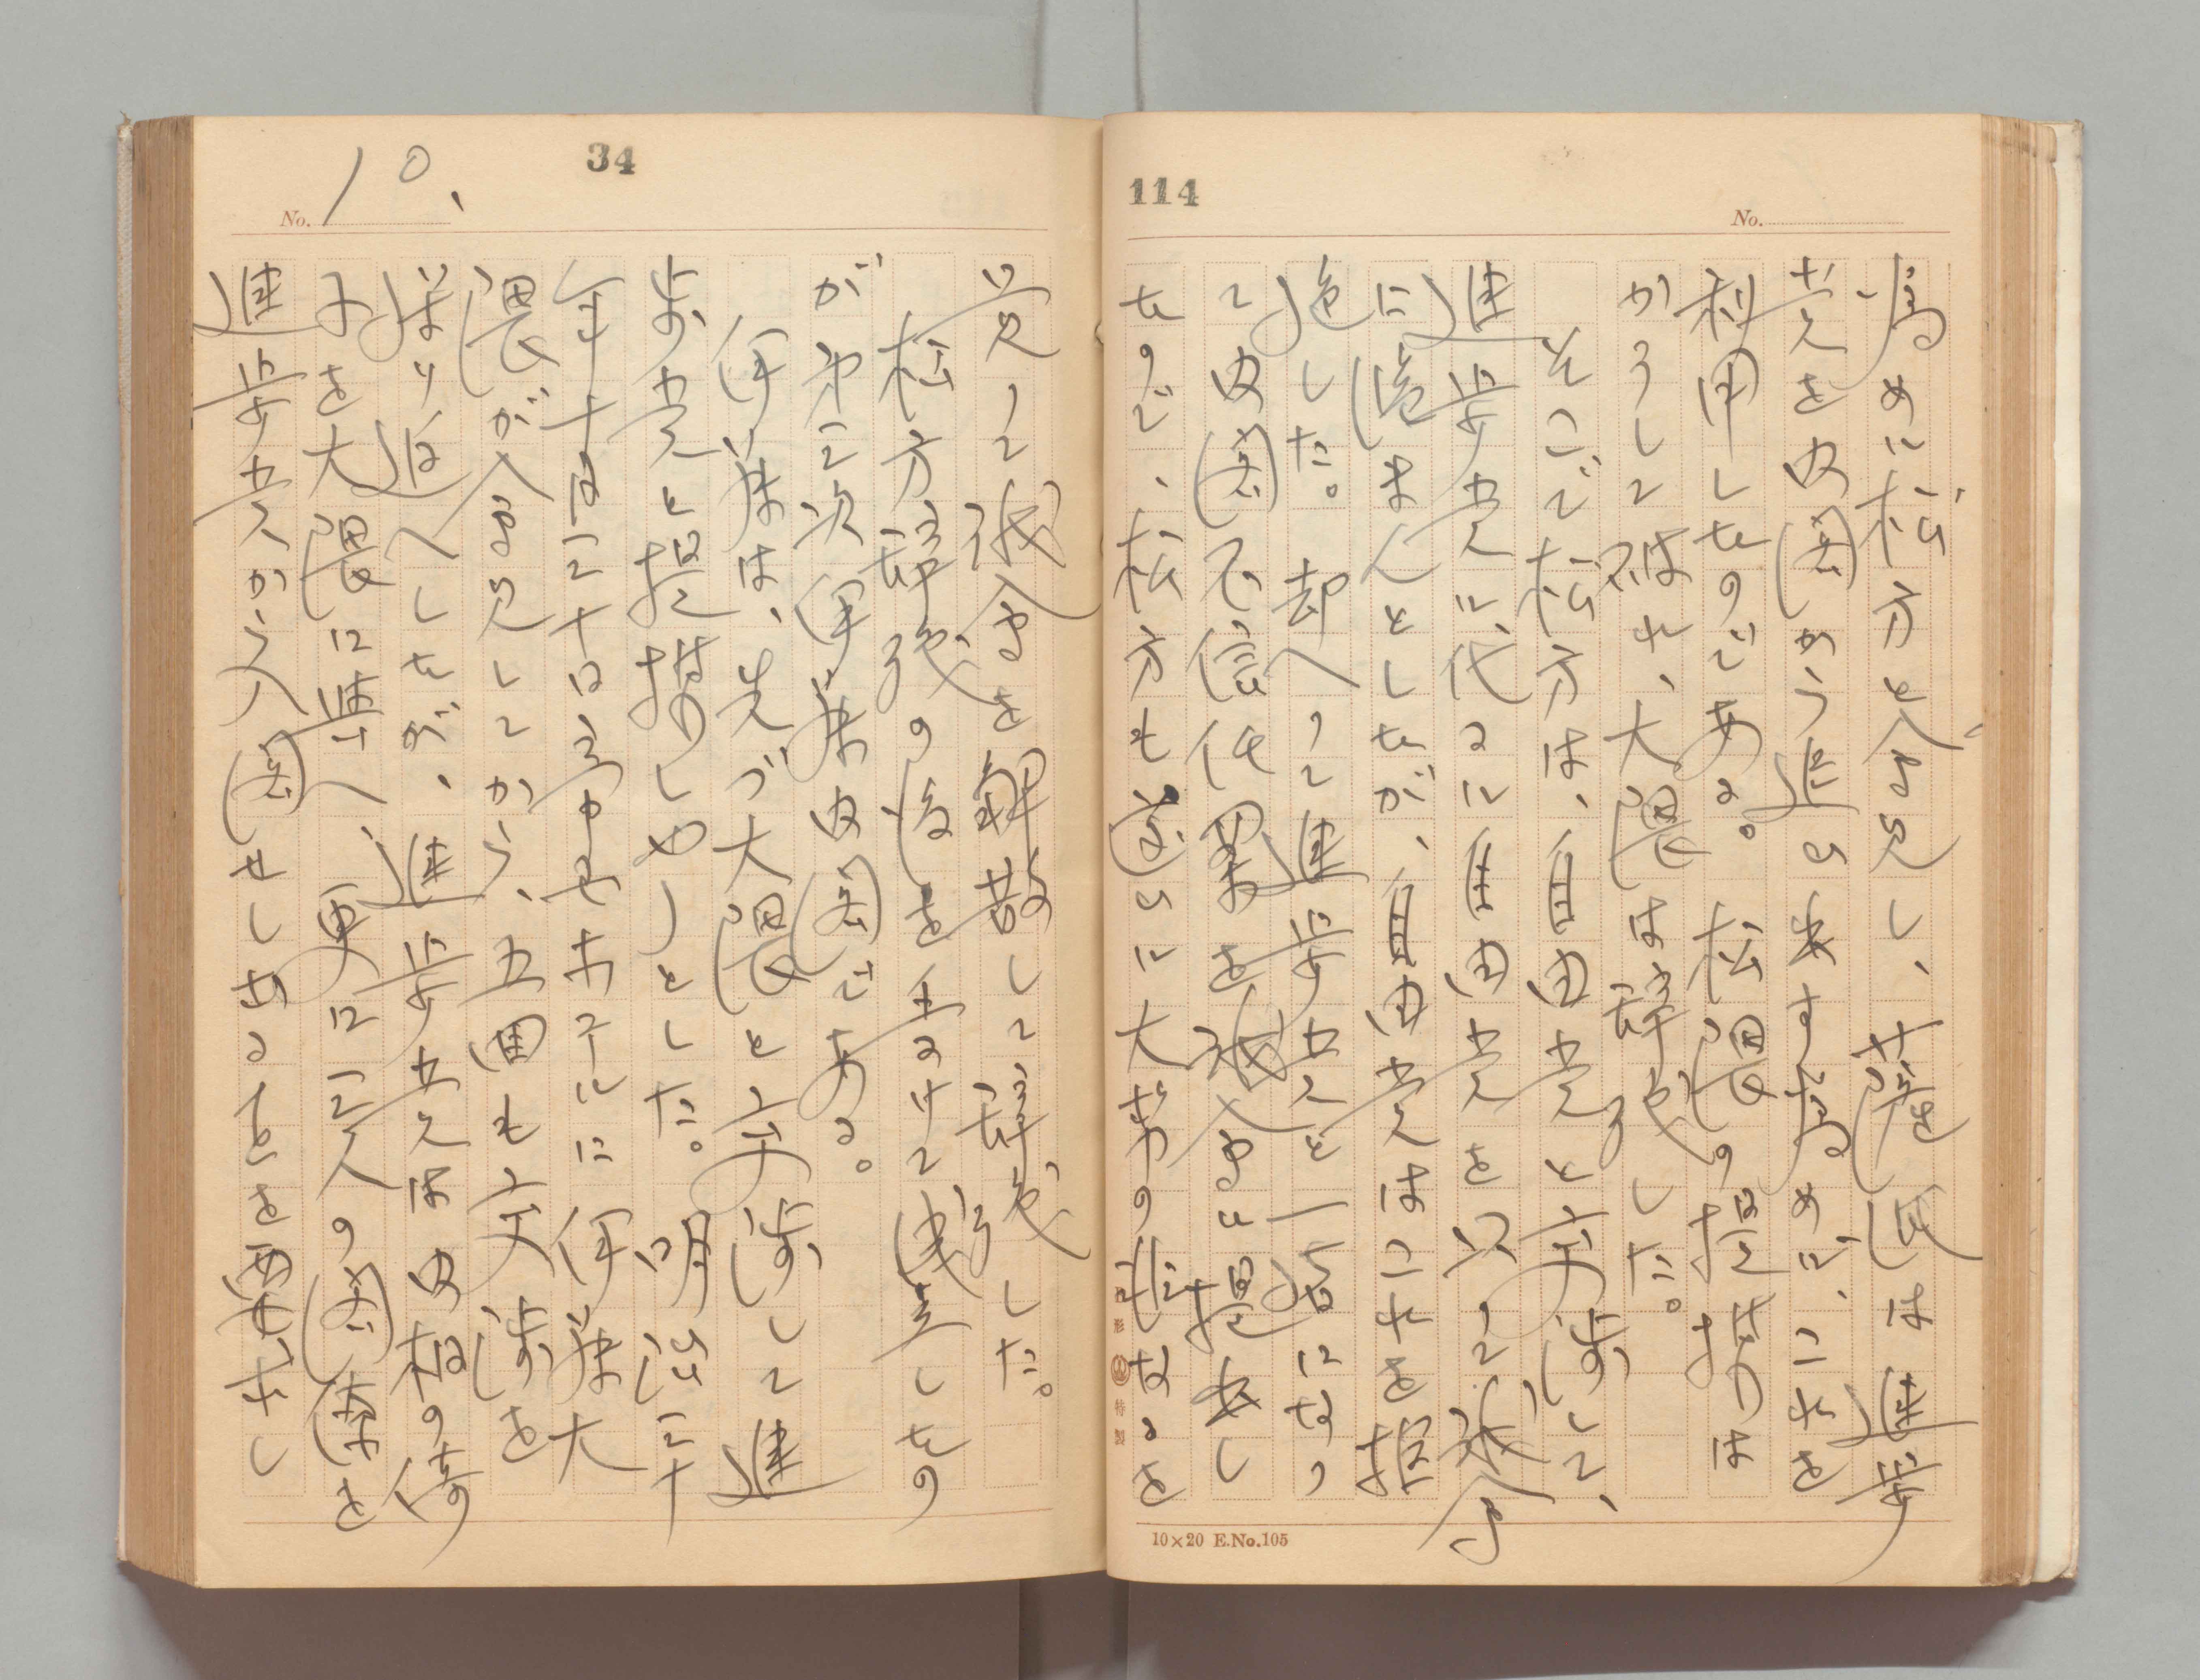 114
No.
為めに松方と会見し、薩派は進歩
党を内閣から追ひ出す為めに、これを
利用したのである。松隈の提携は
かうして破れ、大隈は辞職した。
そこで松方は、自由党と交渉して、
進歩党に代るに自由党を以て議会
に臨まんとしたが、自由党はこれを拒
絶した。却って進歩党と一緒になつ
て内閣不信任案を議会に提出し
たので、松方も遂に大勢の非なるを
10×20 E.No.105
34
No. 10.
覚つて議会を解散して辞職した。
松方辞職の後を受けて成立したの
が第三次伊藤内閣である。
伊藤は、先づ大隈と交渉して進
歩党と提携しやうとした。明治三十
年十二月三十日
隈が会見してから、五回も交渉を
繰り返へしたが、進歩党は内相の椅
子を大隈に与へ、更に三人の閣僚を
進歩党から入閣せしめることを要求し